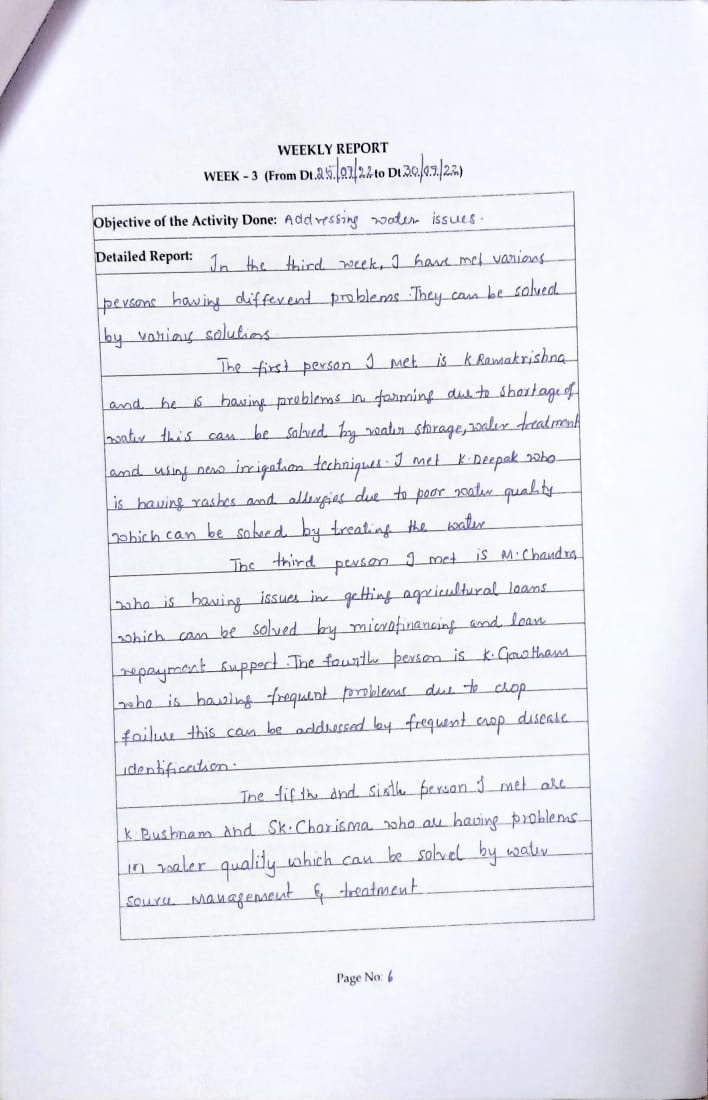 WEEKLY REPORT
WEEK - 3 (From Dt.25/07/22 to Dt.30/07/22)
Objective of the Activity Done: Addressing water issues.
Detailed Report: In the third week, I have met various
persons having different problems. They can be solved
by various solutions
The first person I met is K Ramakrishna
and he is having problems in farming due to shortage of
water this can be solved by water storage, water treatment
and using new irrigation techniques. I met K. Deepak who
is having rashes and allergies due to poor water quality
which can be solved by treating the water
The third person I met is M. Chandra
who is having issues in getting agricultural loans
which can be solved by microfinancing and loan
repayment support. The fourth person is K. Gowtham
who is having frequent problems due to crop
failure this can be addressed by frequent crop disease
identification.
The fifth and sixth person I met are
K Bushnam and Sk. Charisma who are having problems
in water quality which can be solved by water
source management & treatment
Page No: 6